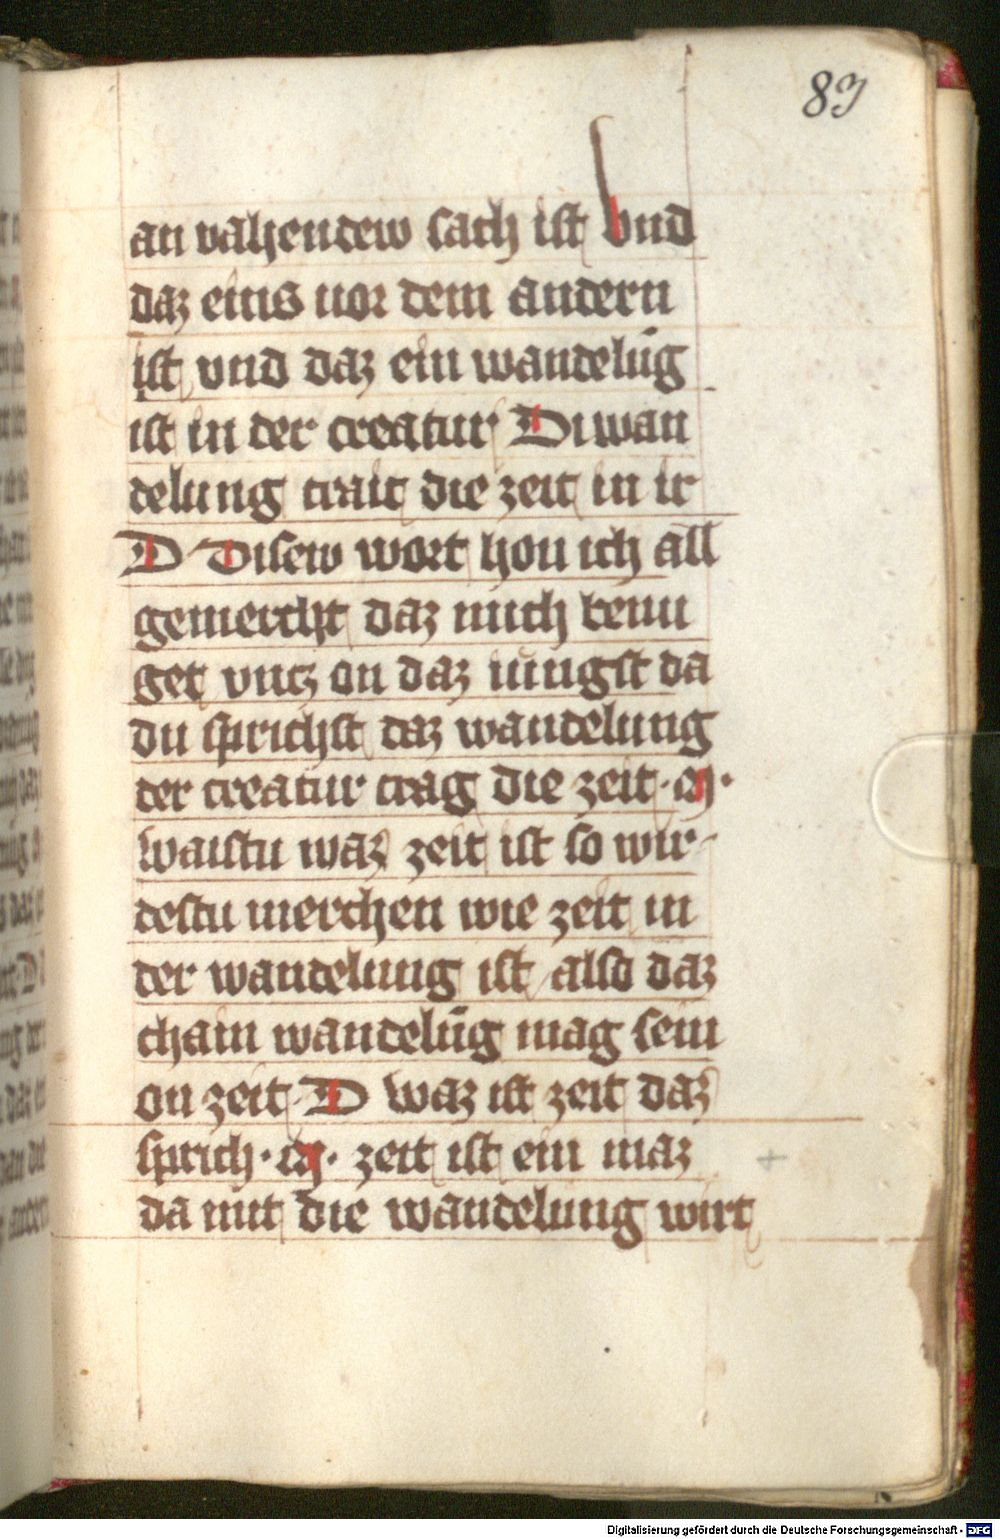 83
an vahendew sach ist vnd
daz eins vor dem andern
ist vnd daz ein wandelūg
ist in der creatur Di wan
delung trait die zeit in ir
D Disew wort hon ich all
gemercht daz mich benu
get vncz on daz iungst da
du sprichst daz wandelung
der creatur trag die zeit · M ·
waistu waz zeit ist so wir
destu merchen wie zeit in
der wandelung ist also daz
chain wandelūg mag sein
on zeit D waz ist zeit daz
sprich · M · zeit ist ein maz
da mit die wandelung wirt
Digitalisierung gefördert durch die Deutsche Forschungsgemeinschaft - DFG